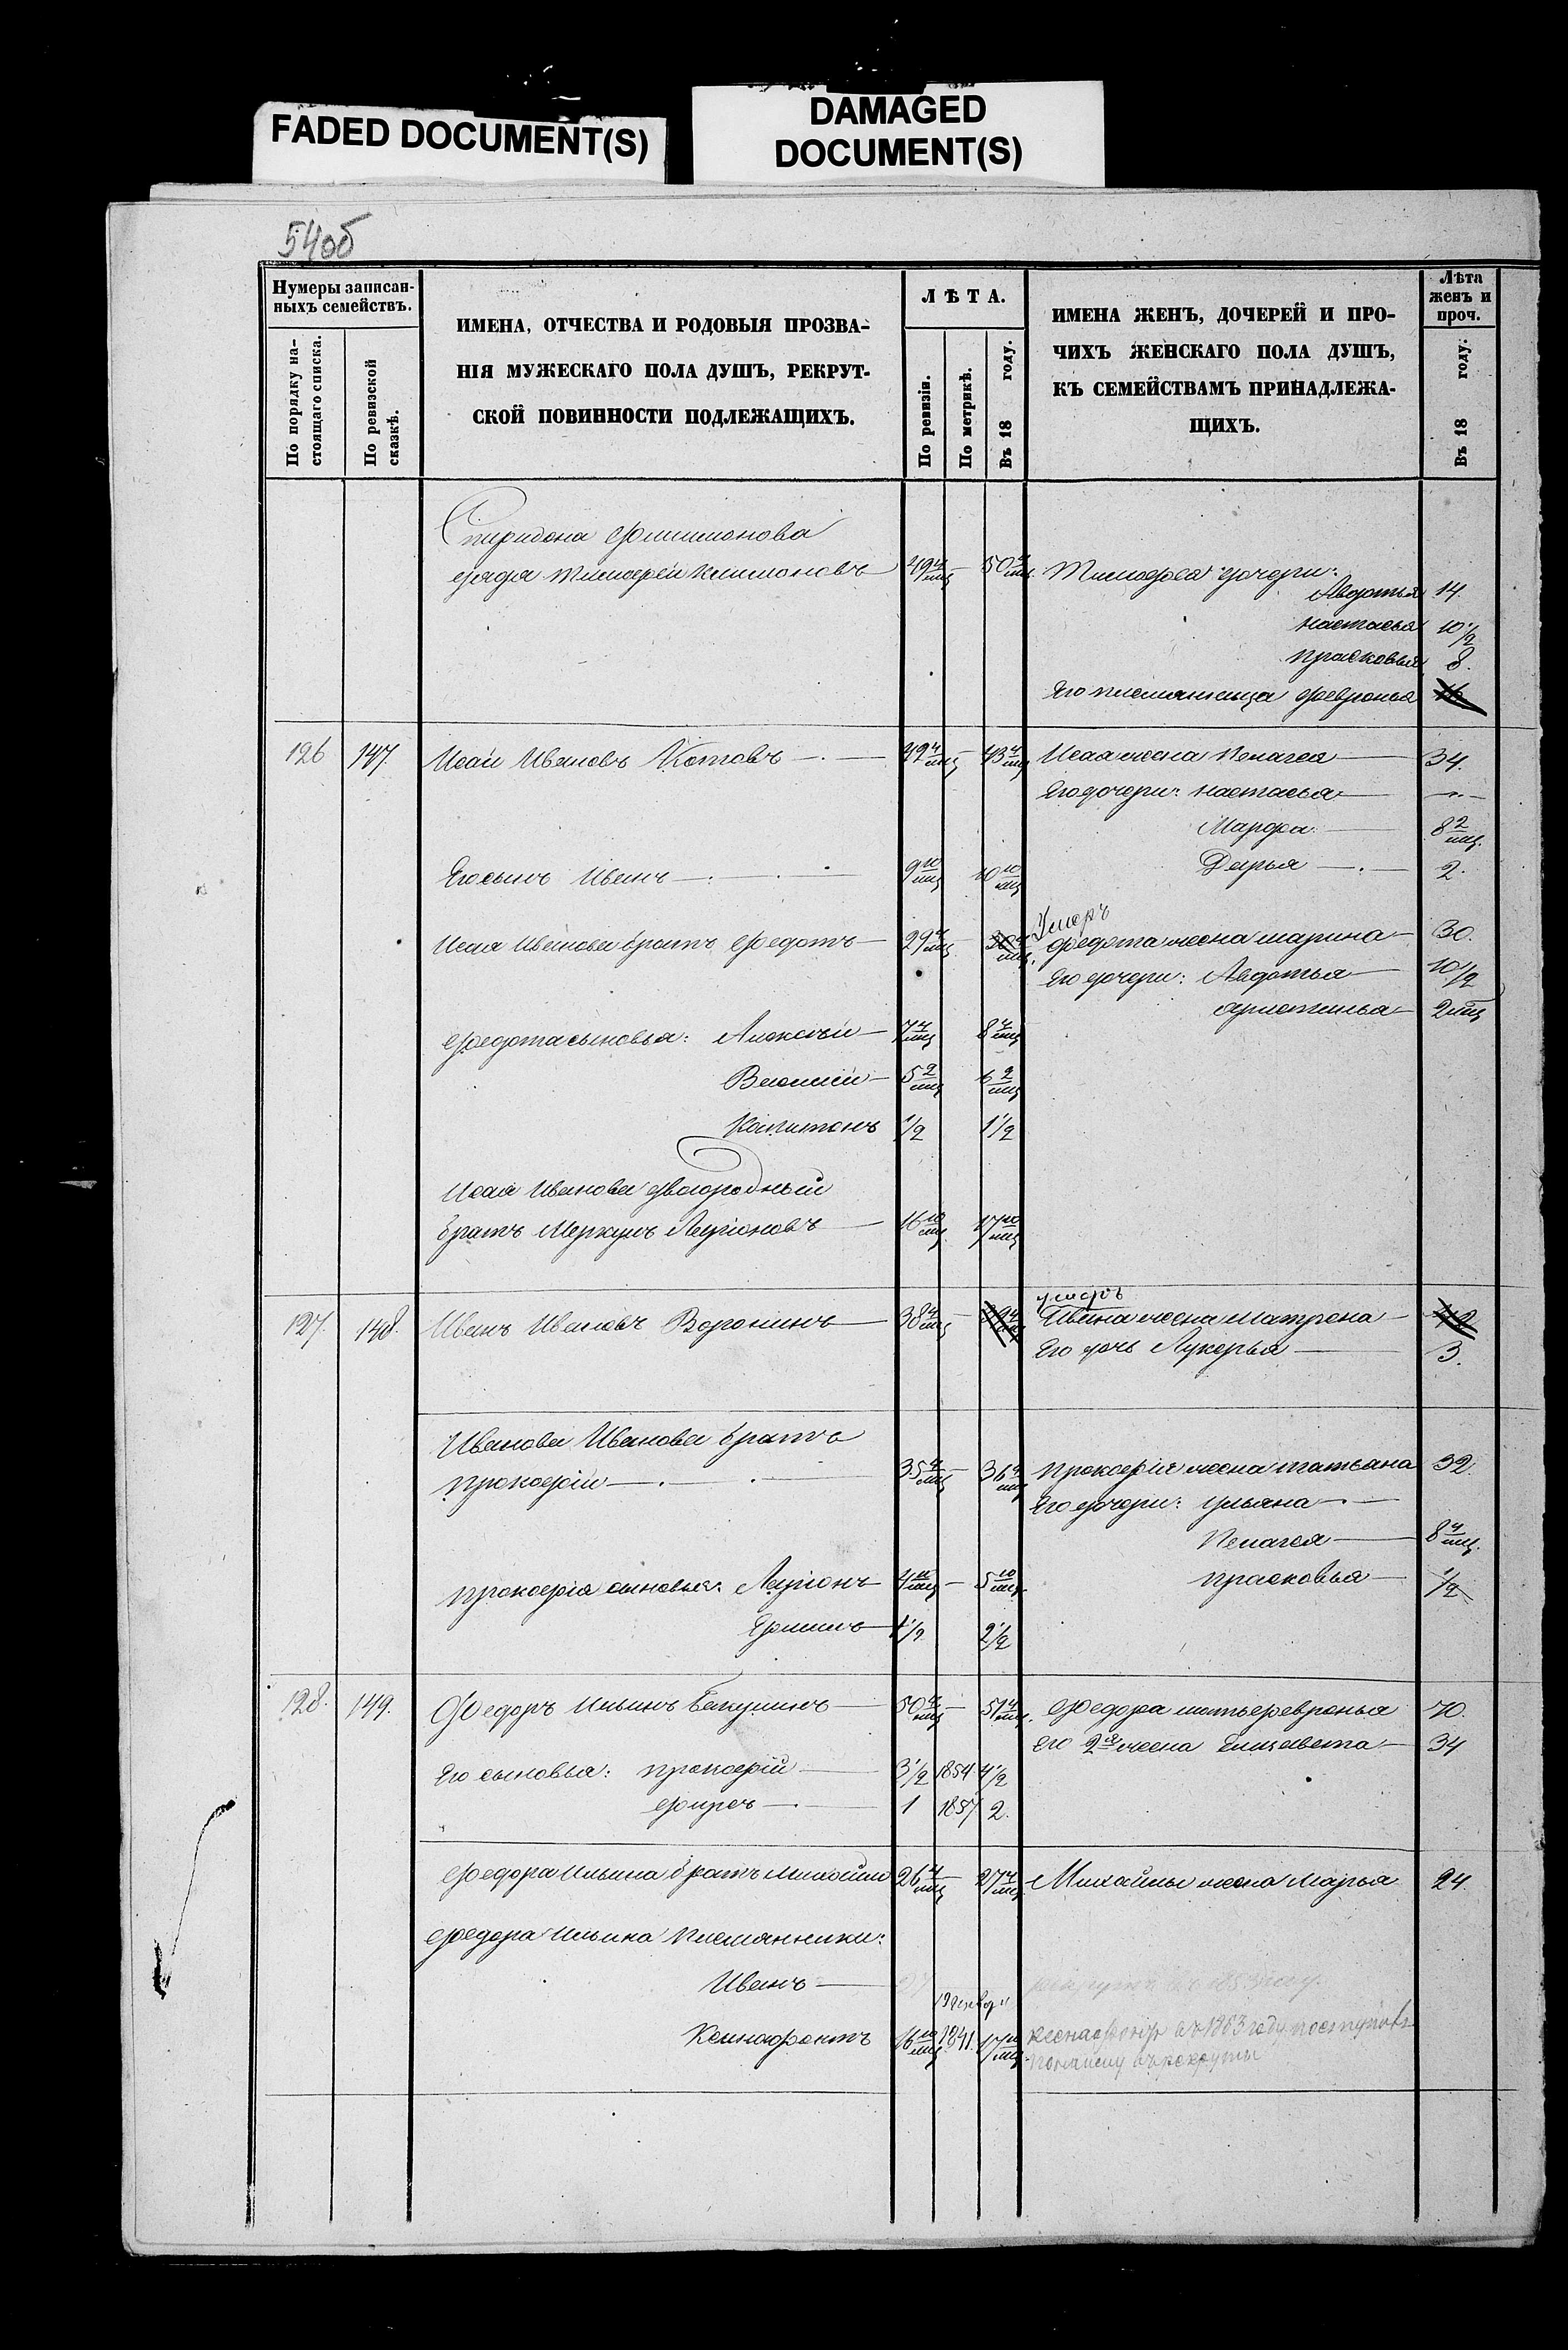 FADED DOCUMENT(S)
DAMAGED
DOCUMENT(S)
54об
Нумеры записан-
ныхъ семействъ.
По порядку на-
стоящаго списка.
По ревизской
сказкѣ.
ИМЕНА, ОТЧЕСТВА И РОДОВЫЯ ПРОЗВА-
НІЯ МУЖЕСКАГО ПОЛА ДУШЪ, РЕКРУТ-
СКОЙ ПОВИННОСТИ ПОДЛЕЖАЩИХЪ.
ЛѢТА.
По ревизіи.
По метрикѣ.
Въ 18 году.
ИМЕНА ЖЕНЪ, ДОЧЕРЕЙ И ПРО-
ЧИХЪ ЖЕНСКАГО ПОЛА ДУШЪ,
КЪ СЕМЕЙСТВАМЪ ПРИНАДЛЕЖА-
ЩИХЪ.
Лѣта
женъ и
проч.
Въ 18 году:
Спиридона Филимонова
дядя Тимофей Климоновъ 49 4/мц — 50 4/мц. Тимофея дочери:
Авдотья 14.
Настасья 10 1/2
Прасковья 8.
Его племянница Февронья 16
126 147. Исай Ивановъ Котовъ — 42 4/мц — 43 4/мц Исая жена Пелагея — 34.
Его дочери: Настасья —
Марфа — 8 2/мц.
Его сынъ Иванъ — 9 10/мц 10 10/мц Дарья — 2.
Умеръ
Исая Иванова братъ Федотъ — 29 4/мц — 30 4/мц. Федота жена Марина — 30.
Его дочери: Авдотья — 10 1/2
Устинья — 2 мц
Федота сыновья: Алексѣй — 7 4/мц 8 4/мц
Василій — 5 2/мц 6 2/мц
Капитонъ 1/2 1 1/2
Исая Иванова двоюродный
братъ Меркулъ Ларіоновъ — 16 10/мц 17 10/мц
умеръ
127. 148. Иванъ Ивановъ Воронинъ — 38 4/мц — 39 4/мц Ивана жена Матрена — 42
Его дочь Лукерья — 3.
Иванова Иванова братъ
Прокофій — 35 4/мц — 36 4/мц Прокофія жена Татьяна 32.
Его дочери: Ульяна —
Пелагея — 8 4/мц.
Прокофія сыновья: Ларіонъ 4 10/мц — 5 10/мц Прасковья — 1/2
Ермилъ — 1 1/2 2 1/2
128. 149. Федоръ Ильинъ Бакулинъ — 50 4/мц — 51 4/мц. Федора мать Февронья 70.
Его 2я жена Елизавета — 34
Его сыновья: Прокофій — 3 1/2 1854 4 1/2
Фирсъ — 1 1857 2.
Федора Ильина братъ Михайло 26 4/мц — 27 4/мц Михайлы жена Марья 24.
Федора Ильина племянники:
Иванъ —
Ксенофонтъ 16 10/мц 1841. 17 10/мц. Ксенофонтъ въ 1863 году поступилъ
по найму въ рекруты